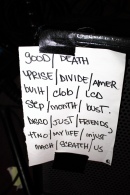 good / DEATH
UPRISE / DIVIDE / AMER
built / club / LCD
STEP / month / bust.
DEAD / JUST / FRIENDS
TWO / MY LIFE / injust
MARCH / SCRATCH / US